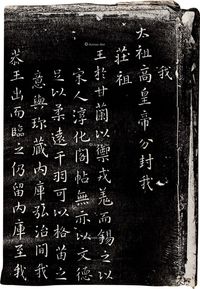 我
太祖高皇帝分封我
莊祖
王於甘蘭以輿戎羗而錫之以
宋人淳化閣帖無亦以文德
足以柔遠干羽可以格苗之
意與珎藏內庫弘治間我
恭王出而臨之仍留內庫至我